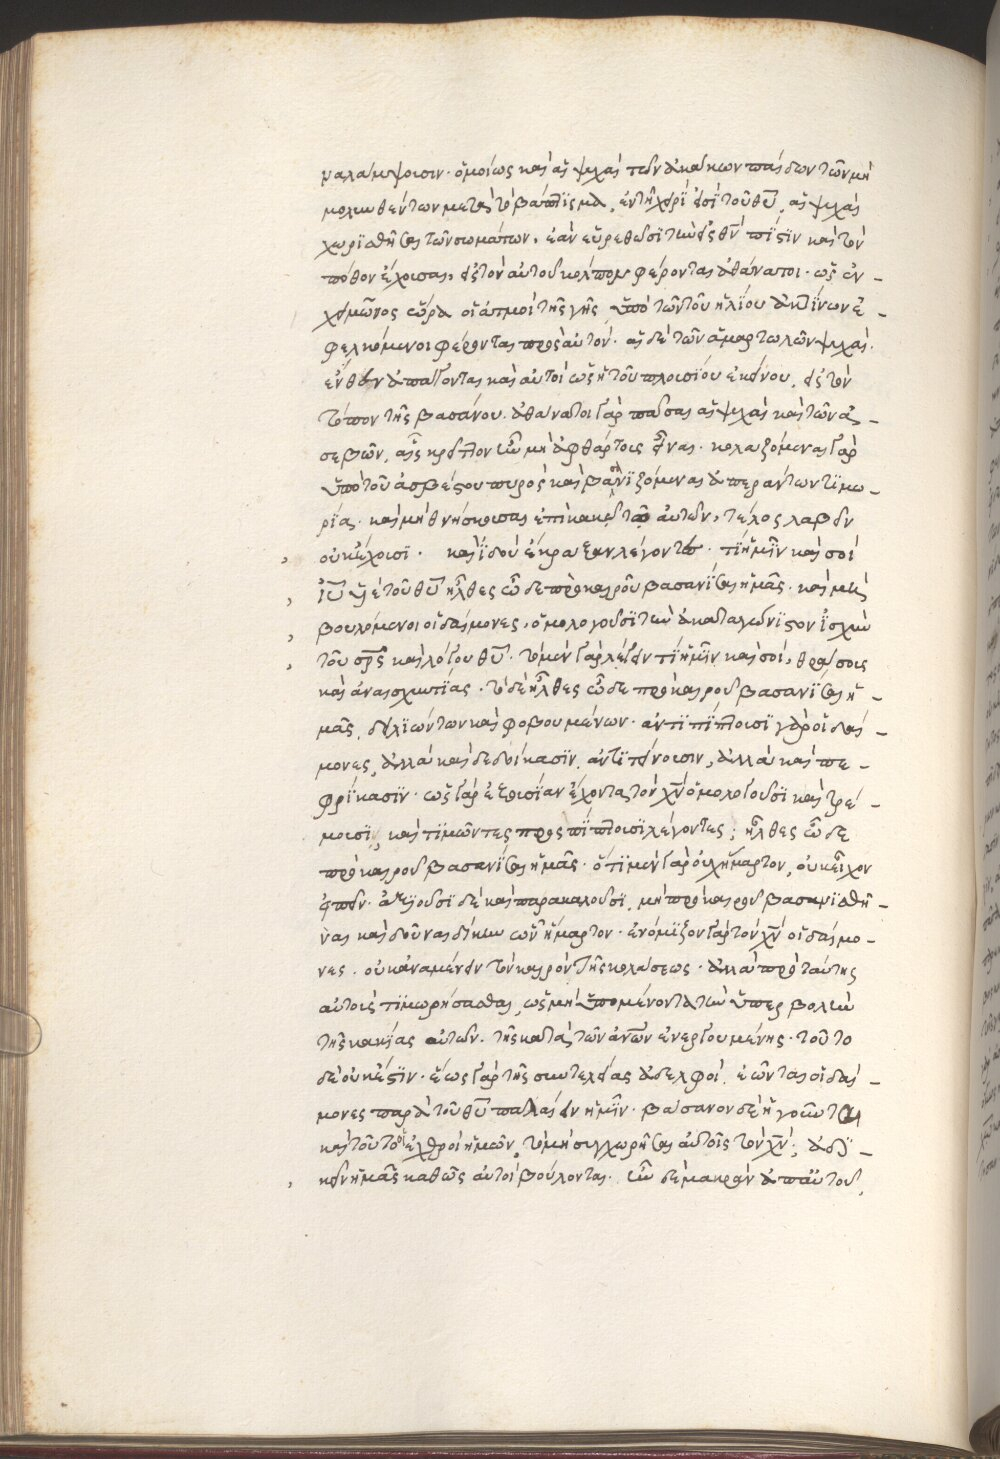 ναλάμψουσιν· ὁμοίως καὶ αἱ ψυχαὶ τῶν δικαίων πάντων τῶν μὴ
μολυνθέντων μετὰ τὸ βάπτϊσμα, ἐν τῇ χειρὶ εἰσὶ τοῦ θῦ, αἱ ψυχαὶ
χωρϊσθῆναι τῶν σωμάτων, ἐὰν εὑρεθῶσϊ τὴν εἰς θν πίστϊν καὶ τὸν
πόθον ἔχουσαι, εἰς τὸν αὐτοῦ κόλπον φέρονται ἀθάνατοι· ὡς ἐν
χειμῶνος ὥρᾳ οἱ ἀτμοὶ τῆς γῆς ὑπὸ τῶν τοῦ ἡλίου ἀκτίνων ἐ–
φελκόμενοι φέρονται πρὸς αὐτόν· αἱ δὲ τῶν ἁμαρτωλῶν ψυχαί.
ἔνθεν ἀπάγονται καὶ αὐτοὶ ὡς ἡ τοῦ πλουσίου ἐκείνου, εἰς τὸν
τόπον τῆς βασάνου. ἀθάνατοι γὰρ πᾶσαι αἱ ψυχαὶ καὶ τῶν ἀ–
σεβῶν, αἷς κρεῖττον ἦν μὴ ἀφθάρτους εἶναι· κολαζόμεναι γὰρ
ὑπὸ τοῦ ἀσβέστου πυρὸς καὶ βασανϊζόμεναι ἀπεράντω τϊμω–
ρίᾳ· καὶ μὴ θνήσκουσαι ἐπὶ κακῶ τῶ αὐτῶν, τέλος λαβεῖν
οὐκ ἔχουσϊ· καὶ ἰδοὺ ἔκραξαν λέγοντες· τί ἡμῖν καὶ σοὶ
ἰῦ υἱὲ τοῦ θῦ ἦλθες ὧδε πρὸ καιροῦ βασανίσαι ἡμᾶς· καὶ μὴ
βουλόμενοι οἱ δαίμονες, ὁμολογοῦσϊ τὴν ἀκαταγώνϊστον ἰσχὺν
τοῦ σρς καὶ λόγου θῦ· τὸ μὲν γὰρ λέγειν τί ἡμῖν καὶ σοὶ, θράσους
καὶ ἀναισχυντίας· τὸ δὲ ἦλθες ὧδε πρὸ καιροῦ βασανίσαι ἡ–
μᾶς, δειλϊώντων καὶ φοβουμένων· ἀντϊπίπτουσϊ γὰρ οἱ δαί–
μονες, ἀλλὰ καὶ δεδοίκασϊν, ἀντϊτείνουσιν, ἀλλὰ καὶ πε–
φρίκασϊν· ὡς γὰρ ἐξουσίαν ἔχοντα τὸν χν ὁμολογοῦσϊ καὶ τρέ–
μουσϊ, καὶ τϊμῶντες προσπίπτουσϊ λέγοντες; ἦλθες ὧδε
πρὸ καιροῦ βασανίσαι ἡμᾶς· ὅτϊ μὲν γὰρ οὐχ ἥμαρτον, οὐκ εἶχον
εἰπεῖν· ἀξιοῦσϊ δὲ καὶ παρακαλοῦσϊ, μὴ πρὸ καιροῦ βασανϊσθῆ–
ναι καὶ δοῦναι δίκην ὧν ἥμαρτον· ἐνόμϊζον γὰρ τὸν χν οἱ δαίμο–
νες· οὐκ ἀναμένειν τὸν καιρὸν τῆς κολάσεως· ἀλλὰ πρὸ ταύτης
αὐτοὺς τϊμωρήσασθαι, ὡς μὴ ὑπομένοντα τὴν ὑπερβολὴν
τῆς κακίας αὐτῶν. τῆς κατὰ τῶν ἀνων ἐνεργουμένης· τοῦτο
δὲ οὐκ ἔστϊν· ἕως γὰρ τῆς συντελείας ἀδελφοὶ, ἐῶνται οἱ δαί–
μονες παρὰ τοῦ θῦ παλαίειν ἡμῖν· βάσανον δὲ ἡγοῦνται
καὶ τοῦτο οἱ ἐχθροὶ ἡμῶν, τὸ μὴ συγχωρῆσαι αὐτοῖς τὸν χν, ἀδϊ–
κεῖν ἡμᾶς καθὼς αὐτοὶ βούλονται. ἦν δὲ μακρὰν ἀπ' αὐτοῦ,